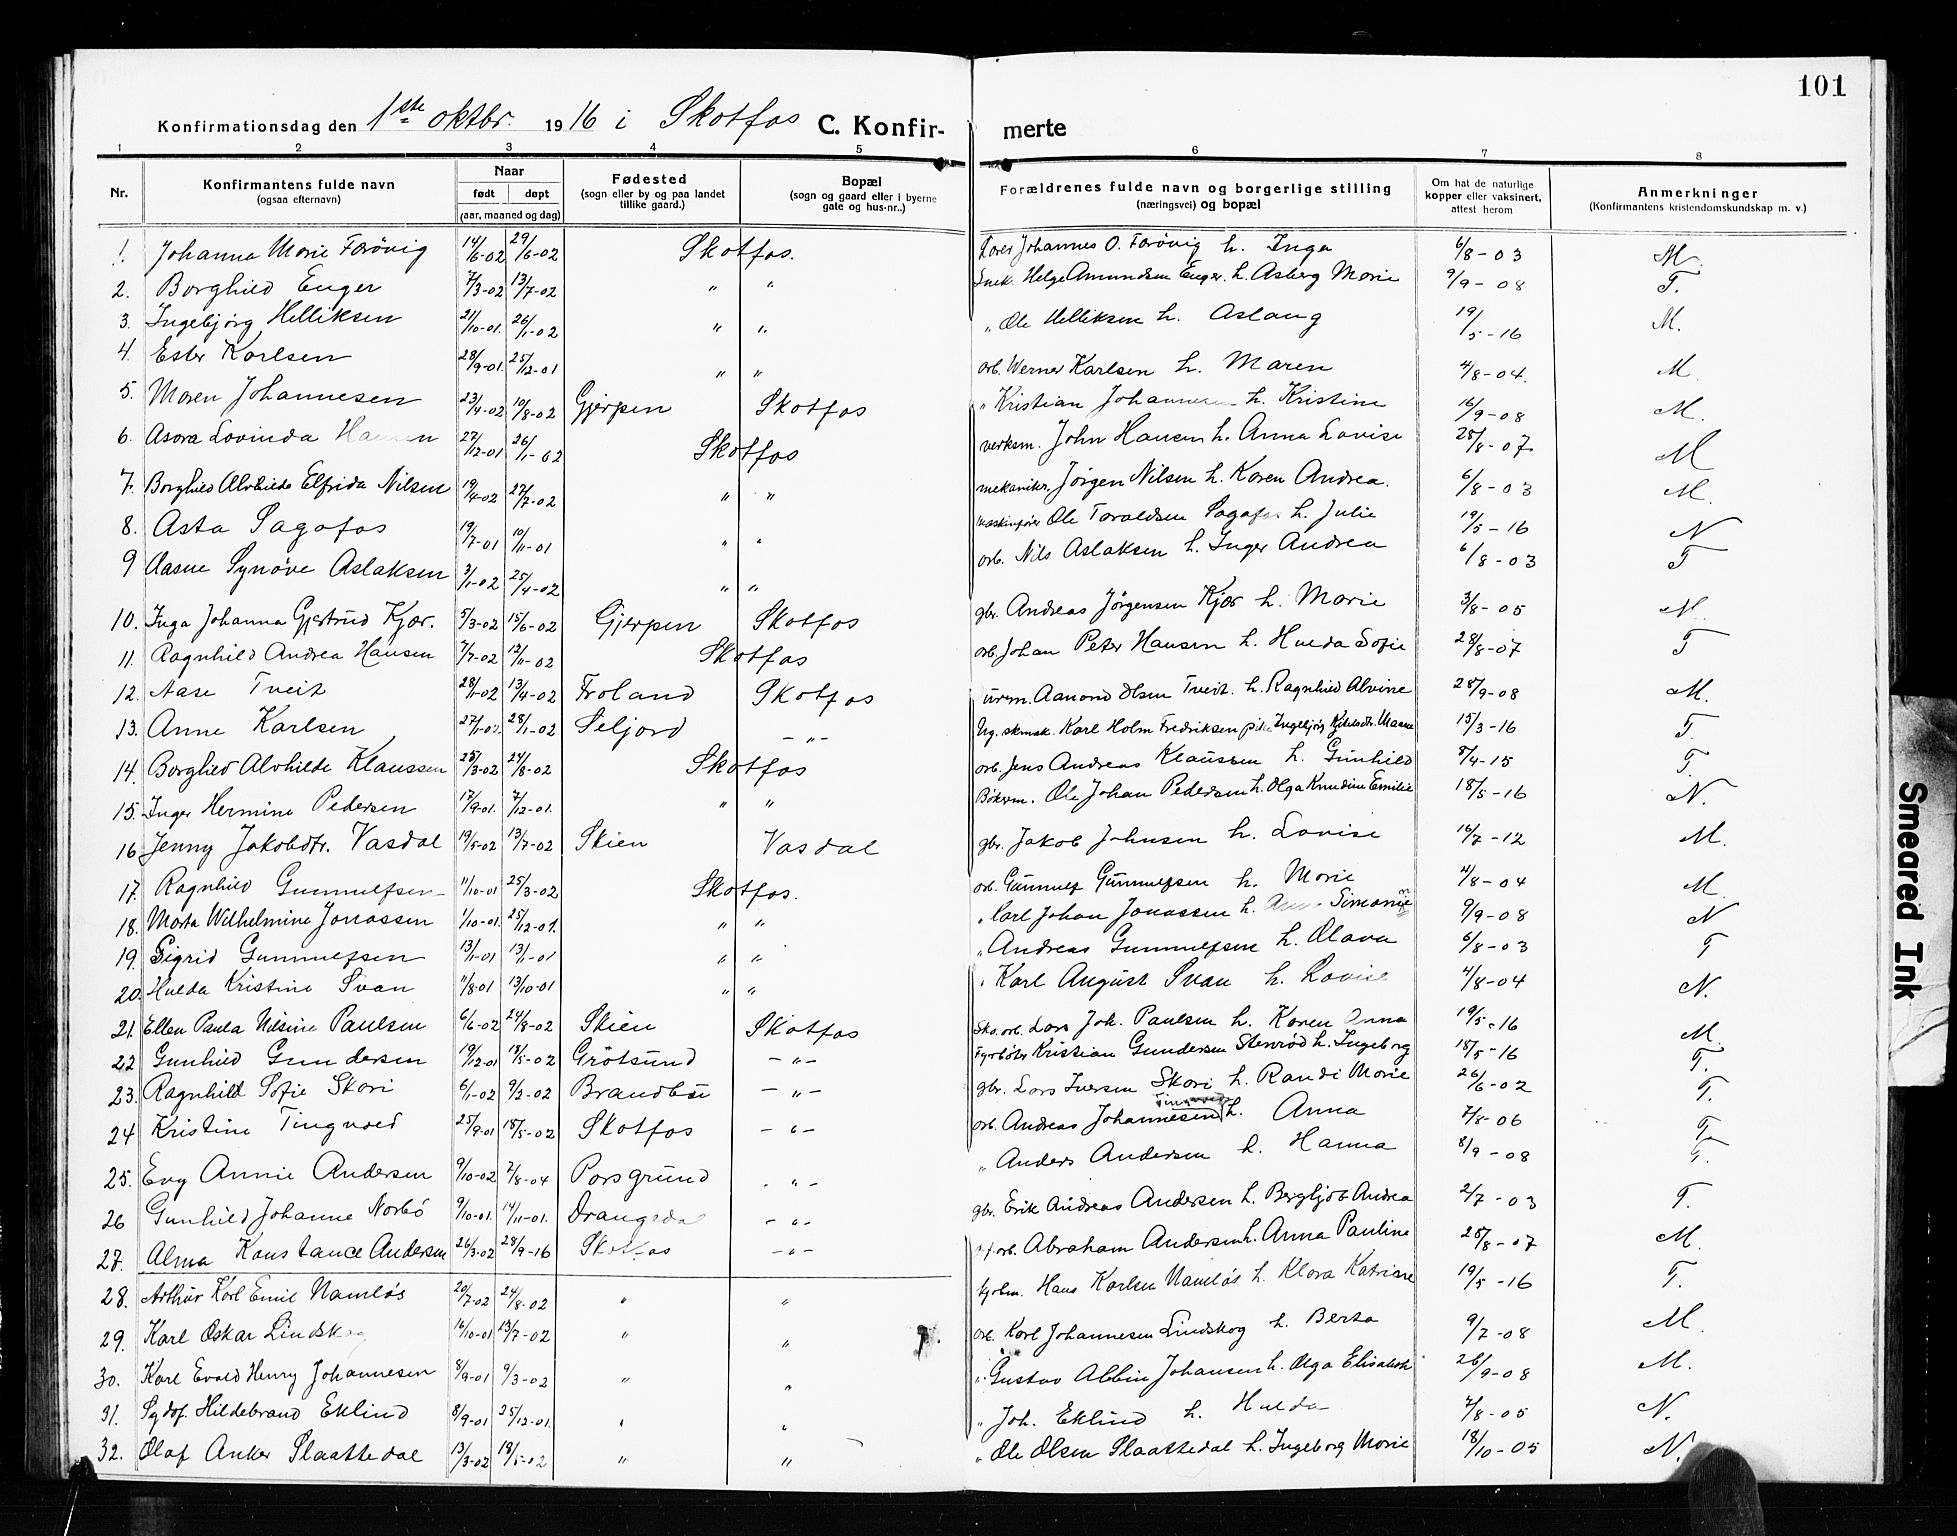 101
Konfirmationsdag den 1ste oktbr. 1916 i Skotfos C. Konfir- merte
1 2 3 4 5 6 7 8
Nr. Konfirmantens fulde navn (ogsaa efternavn) Naar født døpt (aar, maaned og dag) Fødested (sogn eller by og paa landet tillike gaard.) Bopæl (sogn og gaard eller i byerne gate og hus-nr..) Forældrenes fulde navn og borgerlige stilling (næringsvei) og bopæl Om hat de naturlige kopper eller vaksinert, attest herom Anmerkninger (Konfirmantens kristendomskundskap m. v.)
1. Johanna Marie Farövig 14/6-02 29/6-02 Skotfos. Johannes O. Farövig h. Inga 6/8-03 M.
2. Borghild Enger 7/3-02 13/7-02 " " Snek. Helge Amundsen Enger h. Asberg Marie 9/9-08 T.
3. Ingebjørg Helliksen 21/10-01. 26/1-02 " " " Ole Helliksen h. Aslaug 19/5-16 M.
4. Ester Karlsen 28/9-01. 25/12-01 " " arb. Werner Karlsen h. Maren 4/8-04. M.
5. Maren Johannesen 23/4-02 10/8-02 Gjerpen Skotfos " Kristian Johannesen h. Kristine 16/9-08 M.
6. Asora Lovinda Hansen 27/12-01 26/1-02 Skotfos verksm. John Hansen h. Anna Lovise 28/8-07 M
7. Borghild Alvhilde Elfrida Nilsen 19/4-02 27/7-02 " " mekanikr. Jørgen Nilsen h. Karen Andrea. 6/8-03 M.
8. Asta Sagafos 19/7-01 10/11-01 " " maskinfører Ole Taraldsen Sagafos h. Julie 19/5-16 N
9 Aasne Synøve Aslaksen 3/1-02 25/4-02 " " arb. Nils Aslaksen h. Inger Andrea 6/8-03 T
10. Inga Johanna Gjertrud Kjær. 5/3-02 15/6-02 Gjerpen Skotfos gbr. Andreas Jørgensen Kjær h. Marie 3/8-05 M.
11. Ragnhild Andrea Hansen 7/7-02 12/11-02 Skotfos arb. Johan Peter Hansen h. Hulda Sofie 28/8-07 T
12. Aase Tveit 28/1-02 13/4-02 Froland Skotfos urm. Aanond Olsen Tveit. h. Ragnhild Alvine 28/9-08 M.
13. Anne Karlsen 27/1-02. 28/1-02 Seljord -"- Ug. skmak. Karl Holm Fredriksen pike Ingebjørg 15/3-16 T.
14. Borghild Alvhilde Klaussen 25/3-02 24/8-02 Skotfos arb. Jens Andreas Klaussen h. Gunhild 8/4-15 T.
15. Inger Hermine Pedersen 17/9-01. 7/12-01. " " Bøkerm. Ole Johan Pedersen h. Olga Knudine Emilie 18/5-16 N.
16 Jenny Jakobdtr. Vasdal 19/5-02 13/7-02 Skien Vasdal gbr. Jakob Johnsen h. Lovise 16/7-12 M.
17. Ragnhild Gunnulfsen 11/10-01 25/3-02. Skotfos. arb. Gunnulf Gunnulfsen h. Marie 4/8-04 M.
18. Marta Wilhelmine Jonassen 1/10-01. 25/12-01. " " " Carl Johan Jonassen h. Simonine 9/9-08 N
19. Sigrid Gunnulfsen 13/1-01 13/1-01 " " " Andreas Gunnulfsen h. Olava 6/8-03 T
20. Hulda Kristine Svan 11/8-01 13/10-01 " " " Karl August Svan h. Lovise 4/8-04 N.
21. Ellen Paula Nilsine Paulsen 6/6-02 24/8-02 Skien Skotfos Sko.arb. Lars Joh. Paulsen h. Karen Anna 19/5-16 M.
22 Gunhild Gundersen 19/12-01 18/5-02 Grötsund -"- Fyrbøter Kristian Gundersen Stenrød h. Ingeborg 18/5-16 T.
23. Ragnhild Sofie Skari 6/1-02 9/3-02 Brandbu -"- gbr. Lars Iversen Skari h. Randi Marie 26/6-02 T.
24 Kristine Tingvold 25/9-01 18/5-02 Skotfos -"- arb. Andreas Johannesen Tingvold h. Anna 7/8-06 T.
25. Evy Annie Andersen 9/10-02 7/8-04 Porsgrund -"- " Anders Andersen h. Hanna 8/9-08 T.
26 Gunhild Johanne Norbö 9/10-01. 14/11-01. Drangedal -"- gbr. Erik Andreas Andersen h. Bergljot Andrea 2/7-03 T.
27. Alma Konstance Andersen 26/3-02 28/9-16 Skotfos -"- arb. Abraham Andersen h. Anna Pauline 28/8-07 M.
28. Arthur Karl Emil Namløs 20/7-02 24/8-02 " " Hans Karlsen Namløs h. Klara Katrine 19/5-16 T.
29. Karl Oskar Lindskog 16/10-01 13/7-02 " " arb. Karl Johannesen Lindskog h. Berta 9/7-08 M.
30. Karl Evald Henry Johannesen 8/9-01 9/3-02 " " " Gustav Albin Johansen h. Olga Elisabeth 26/9-08 M.
31. Sydof. Hildebrand Eklind 8/9-01 25/12-01. " " " Joh. Eklind h. Hulda 7/8-05 N.
32. Olaf Anker Slaattedal 13/3-02 18/5-02 " " " Ole Olsen Slaattedal h. Ingeborg Marie 18/10-05 N.
Smeared Ink